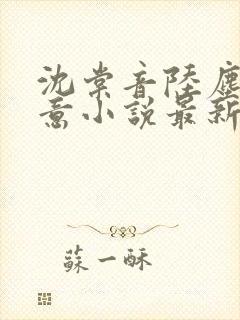 沈棠音陸塵
意小說最新
蘇一酥